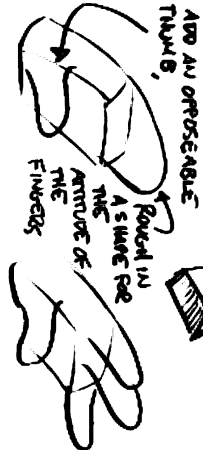 ADD AN OPPOSEABLE
THUMB,
ROUGH IN
A SHAPE FOR
THE
ATTITUDE OF
THE
FINGERS